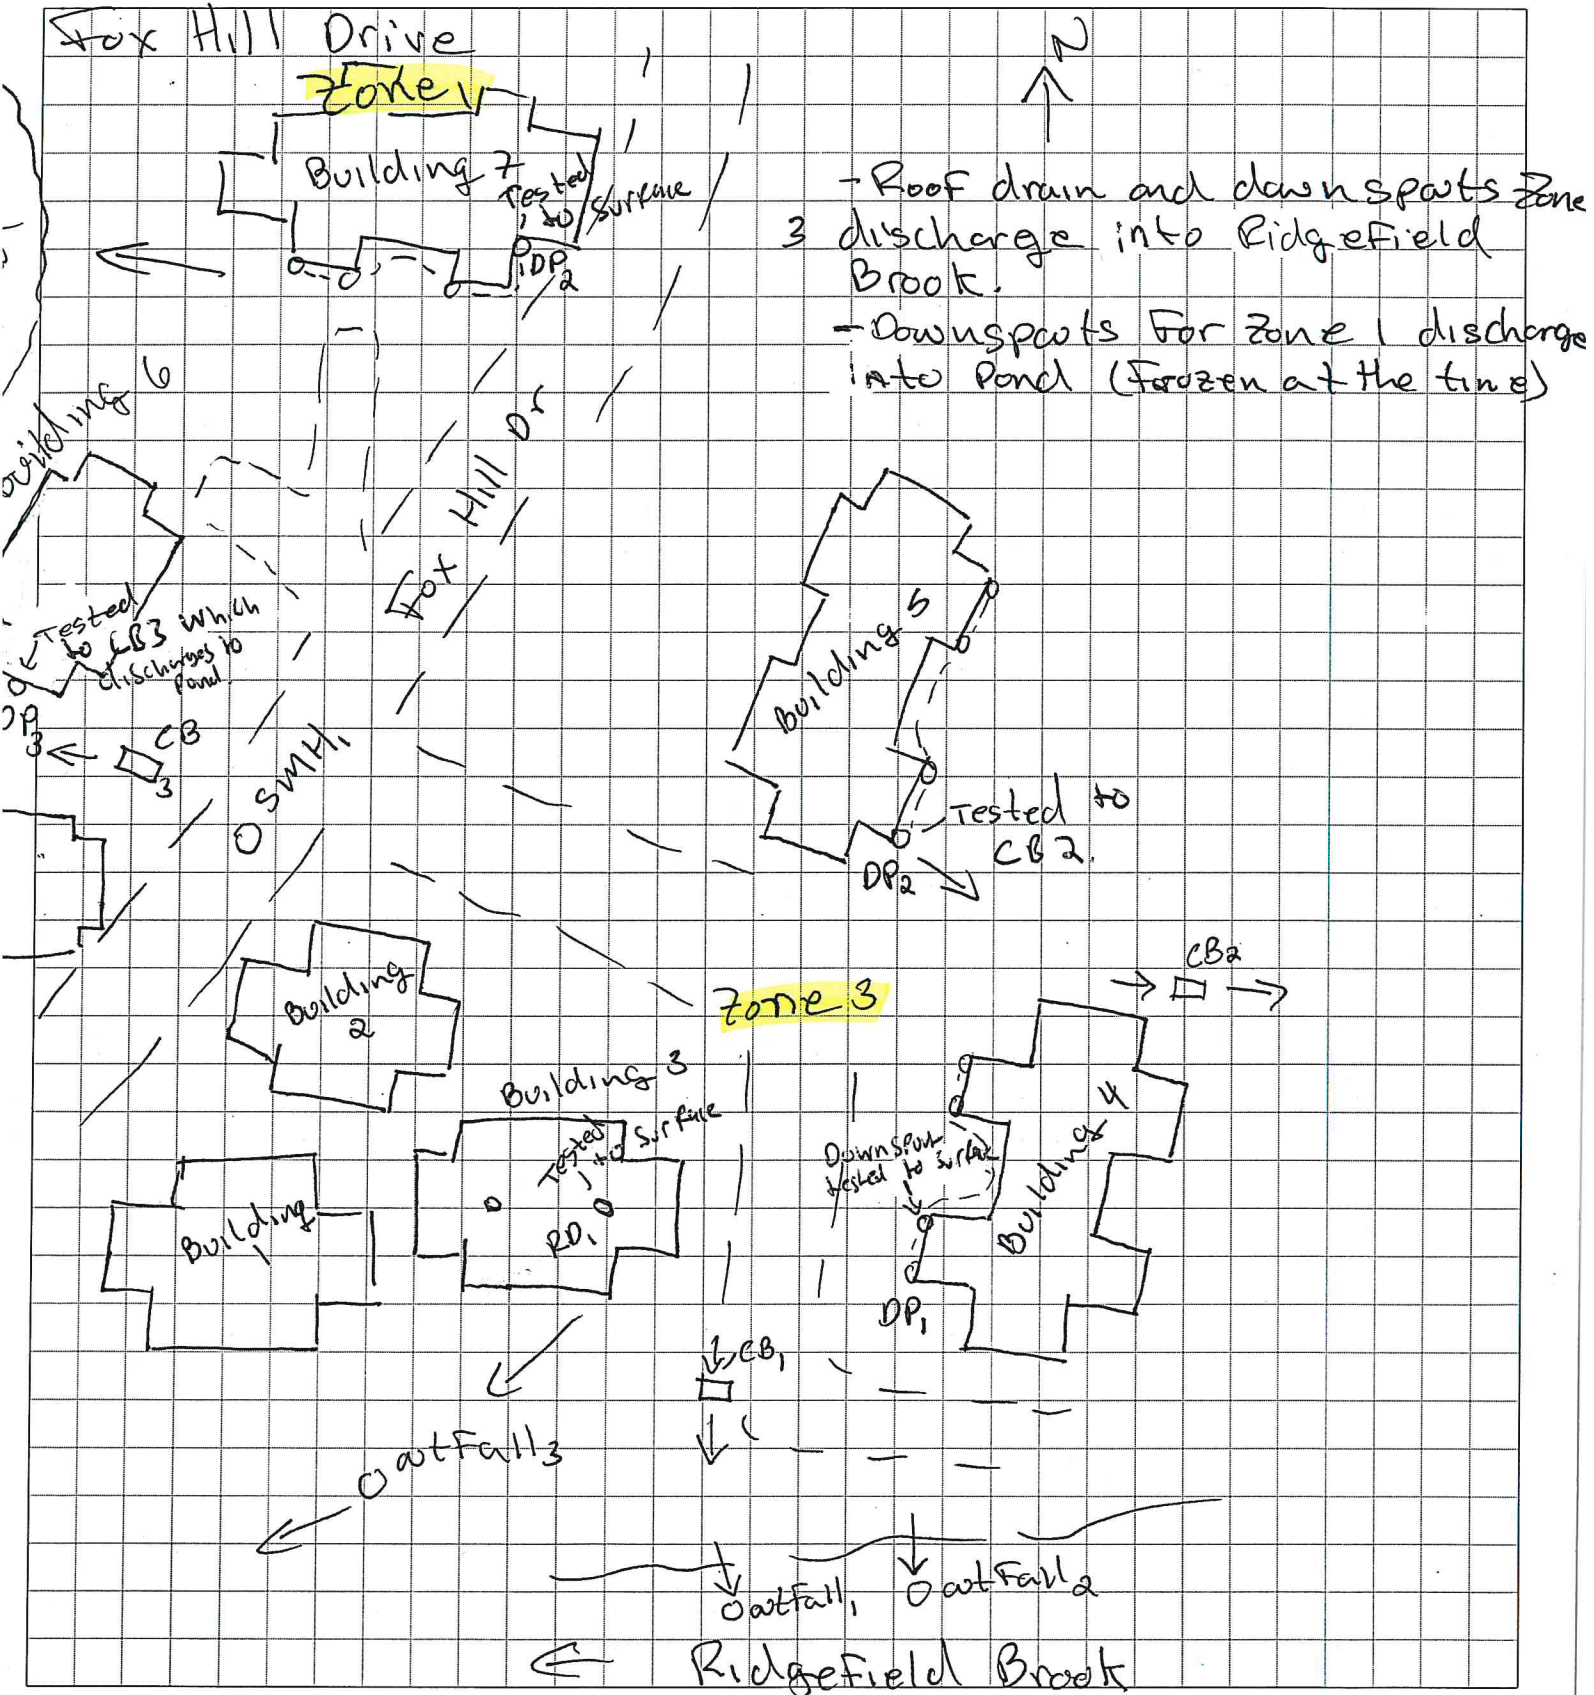 Fox Hill Drive
Zone 1
N
Building 7
Tested
to Surface
DP2
- Roof drain and downspouts Zone
3 discharge into Ridgefield
Brook.
- Downspouts For Zone 1 discharge
into Pond (Frozen at the time)
Building 6
Fox Hill Dr
Tested
to CB3 which
discharges to
Pond.
DP3
CB3
SMH1
Building 5
Tested to
CB2.
DP2
CB2
Building
2
Zone 3
Building 3
Tested
to Surface
RD1
Building
1
Downspout
tested to surface
Building 4
DP1
CB1
Outfall3
Outfall1
Outfall2
Ridgefield Brook